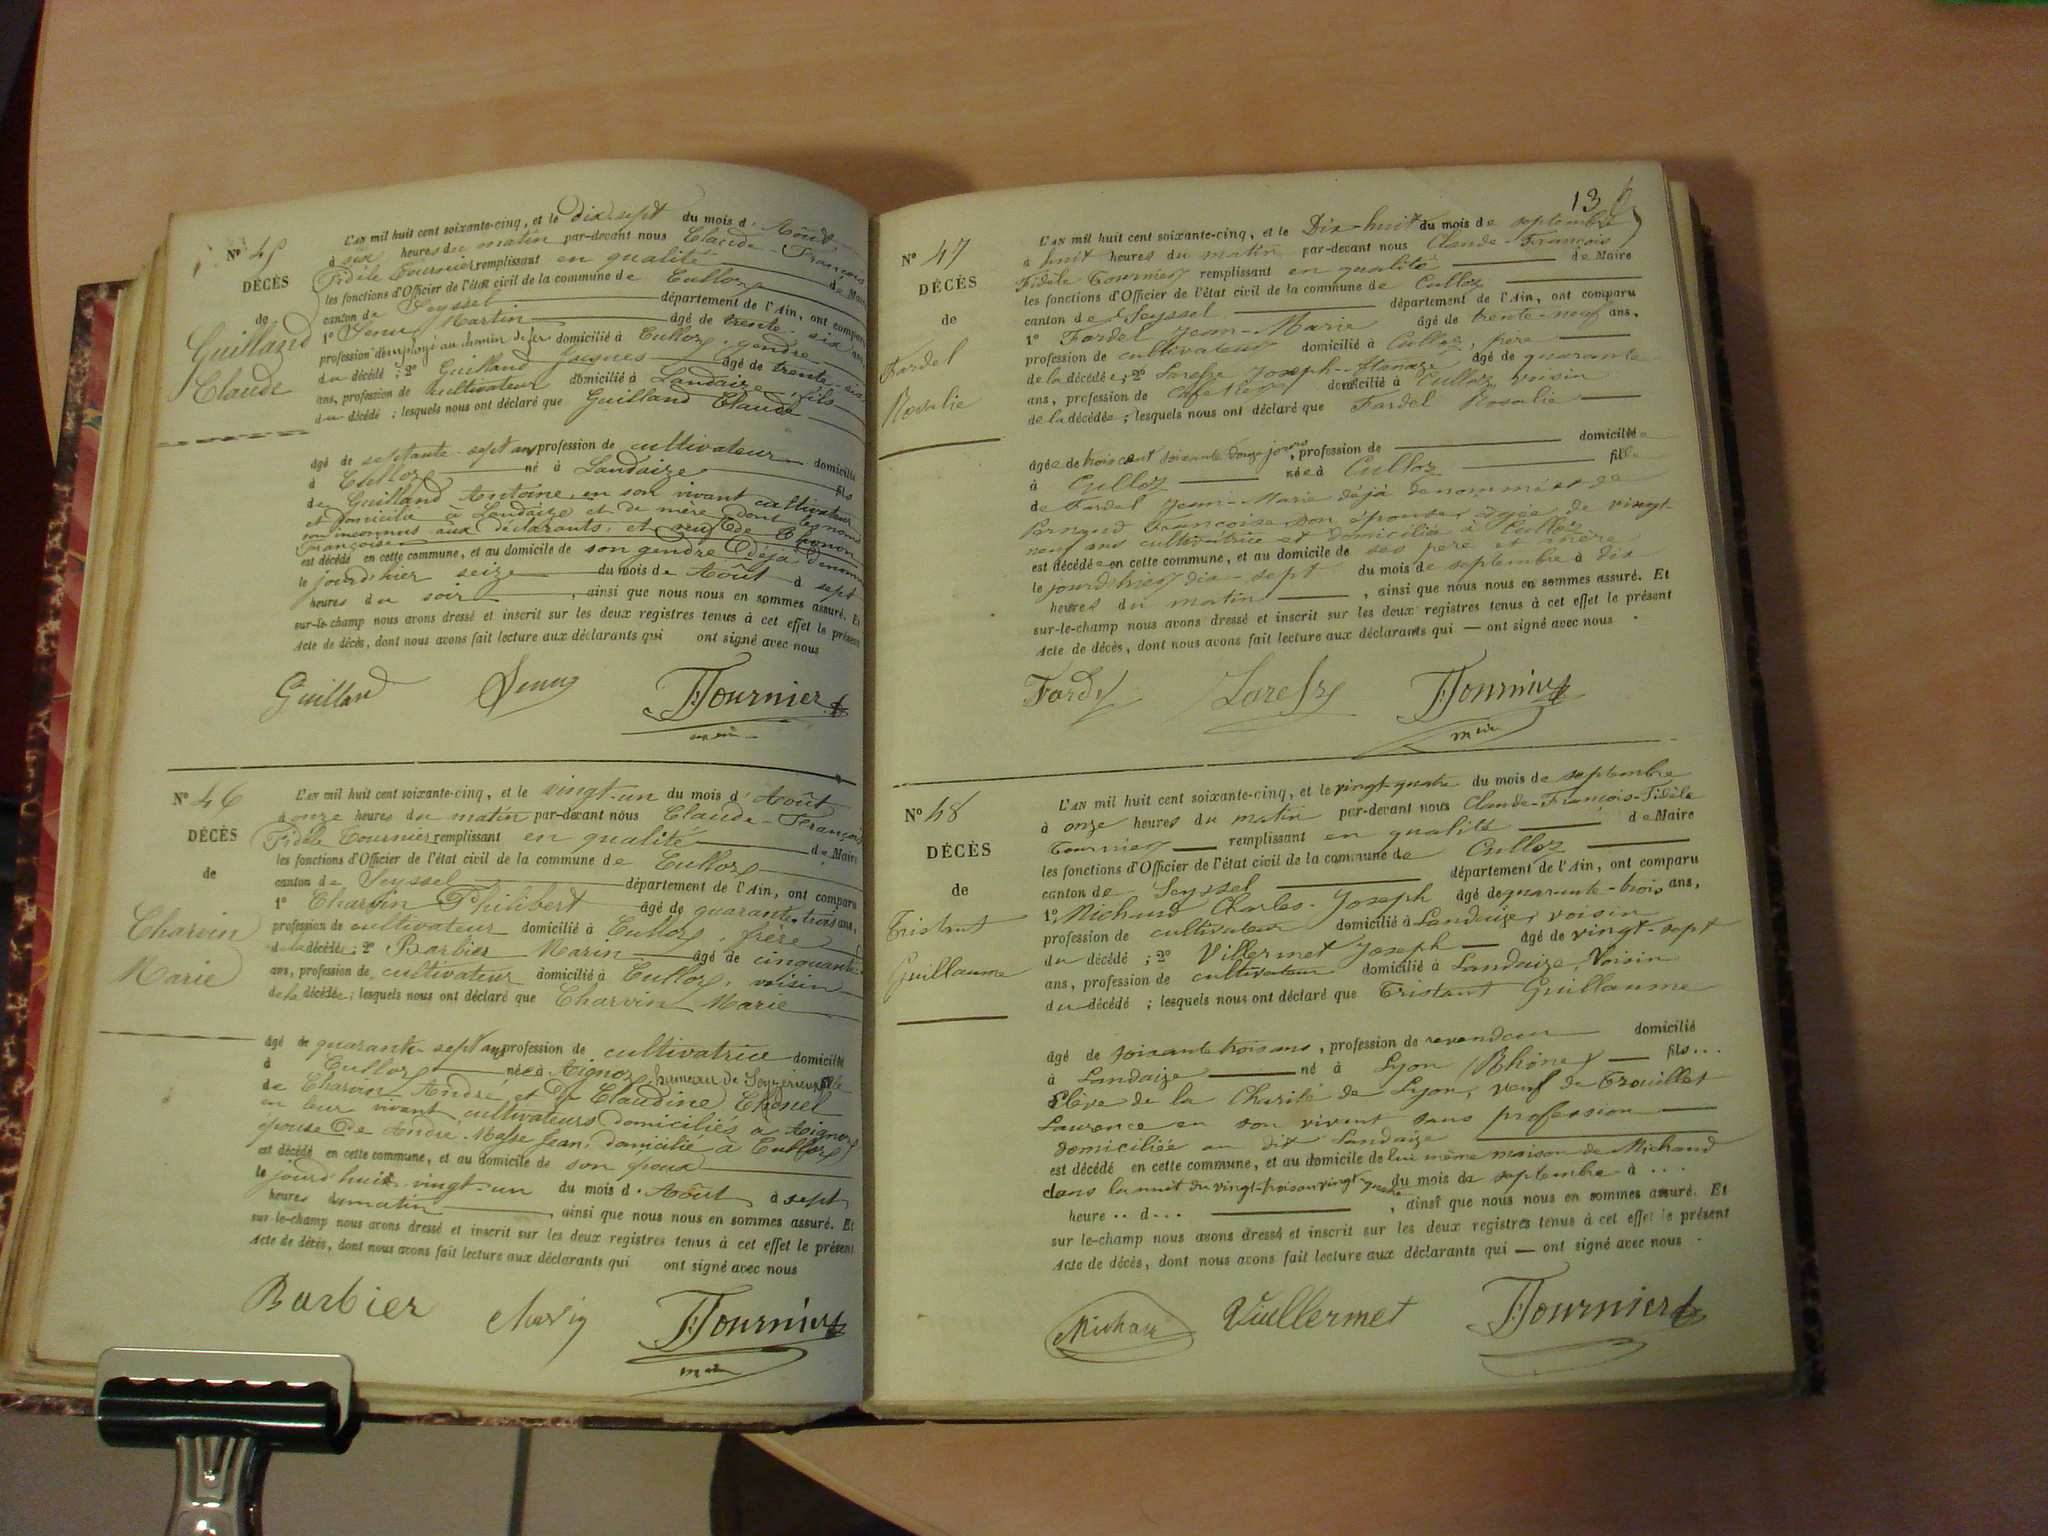 Nº 45
DÉCÈS
de
Guilland
Claude
L'AN mil huit cent soixante-cinq, et le dix-sept du mois d' Août
à six heures du matin par-devant nous Claude-François
Fidèle Fournier remplissant en qualité de Maire
les fonctions d'Officier de l'état civil de la commune de Culloz
canton de Seyssel département de l'Ain, ont comparu
1º Martin âgé de trente-six ans
profession d'employé au chemin de fer domicilié à Culloz, gendre
du décédé ; 2º Guilland Jacques âgé de trente-six
ans, profession de cultivateur domicilié à Landaize, fils
du décédé ; lesquels nous ont déclaré que Guilland Claude
âgé de septante-sept ans profession de cultivateur domicilié
à Culloz né à Landaize fils
de Guilland Antoine, en son vivant cultivateur
et domicilié à Landaize et de mère dont le nom
inconnus aux déclarants, et veuf de
Françoise
est décédé en cette commune, et au domicile de son gendre déjà dénommé
le jourd'hier seize du mois de Août à sept
heures du soir, ainsi que nous nous en sommes assuré. Et
sur-le-champ nous avons dressé et inscrit sur les deux registres tenus à cet effet le présent
Acte de décès, dont nous avons fait lecture aux déclarants qui ont signé avec nous
Guilland
F Fournier
Nº 46
DÉCÈS
de
Charvin
Marie
L'AN mil huit cent soixante-cinq, et le vingt-un du mois d' Août
à onze heures du matin par-devant nous Claude-François
Fidèle Fournier remplissant en qualité de Maire
les fonctions d'Officier de l'état civil de la commune de Culloz
canton de Seyssel département de l'Ain, ont comparu
1º Charvin Philibert âgé de quarante-trois ans,
profession de cultivateur domicilié à Culloz, frère
de la décédée ; 2º Barbier Marin âgé de cinquante
ans, profession de cultivateur domicilié à Culloz, voisin
de la décédée ; lesquels nous ont déclaré que Charvin Marie
âgé de quarante-sept ans profession de cultivatrice domicilié
à Culloz née à Aignoz, hameau de fille
de Charvin André et de Claudine
en leur vivant cultivateurs domiciliés à Aignoz
épouse de André Jean, domicilié à Culloz
est décédé en cette commune, et au domicile de son époux
le jourd'huit vingt-un du mois d' Août à sept
heures du matin, ainsi que nous nous en sommes assuré. Et
sur-le-champ nous avons dressé et inscrit sur les deux registres tenus à cet effet le présent
Acte de décès, dont nous avons fait lecture aux déclarants qui ont signé avec nous
Barbier
F Fournier
13
Nº 47
DÉCÈS
de
Fardel
Rosalie
L'AN mil huit cent soixante-cinq, et le Dix-huit du mois de septembre
à huit heures du matin par-devant nous Claude-François
Fidèle Fournier remplissant en qualité de Maire
les fonctions d'Officier de l'état civil de la commune de Culloz
canton de Seyssel département de l'Ain, ont comparu
1º Fardel Jean-Marie âgé de trente-neuf ans,
profession de cultivateur domicilié à Culloz, père
de la décédée ; 2º Joseph-Atanaze âgé de quarante
ans, profession de cafetier domicilié à Culloz, voisin
de la décédée ; lesquels nous ont déclaré que Fardel Rosalie
âgée de trois cent soixante douze jours, profession de domiciliée
à Culloz née à Culloz fille
de Fardel Jean-Marie déjà dénommé et de
Françoise son épouse, âgée de vingt-
neuf ans cultivatrice et domiciliée à Culloz
est décédée en cette commune, et au domicile de ses père et mère
le jourd'hier dix-sept du mois de septembre à dix
heures du matin, ainsi que nous nous en sommes assuré. Et
sur-le-champ nous avons dressé et inscrit sur les deux registres tenus à cet effet le présent
Acte de décès, dont nous avons fait lecture aux déclarants qui — ont signé avec nous
Fardel
F Fournier
Nº 48
DÉCÈS
de
Tristant
Guillaume
L'AN mil huit cent soixante-cinq, et le vingt-quatre du mois de septembre
à onze heures du matin par-devant nous Claude-François-Fidèle
Fournier remplissant en qualité de Maire
les fonctions d'Officier de l'état civil de la commune de Culloz
canton de Seyssel département de l'Ain, ont comparu
1º Michaud Charles-Joseph âgé de quarante-trois ans,
profession de cultivateur domicilié à Landaize, voisin
du décédé ; 2º Villermet Joseph — âgé de vingt-sept
ans, profession de cultivateur domicilié à Landaize, Voisin
du décédé ; lesquels nous ont déclaré que Tristant Guillaume
âgé de soixante trois ans, profession de revendeur domicilié
à Landaize né à Lyon (Rhône) fils...
Elève de la Charité de Lyon, veuf de Trouillet
Laurence en son vivant sans profession
domiciliée au dit Landaize
est décédé en cette commune, et au domicile de lui même maison de Michaud
dans la nuit du vingt-trois au vingt-quatre du mois de septembre à ...
heure .. d..., ainsi que nous nous en sommes assuré. Et
sur-le-champ nous avons dressé et inscrit sur les deux registres tenus à cet effet le présent
Acte de décès, dont nous avons fait lecture aux déclarants qui — ont signé avec nous
Michaud
Vuillermet
F Fournier